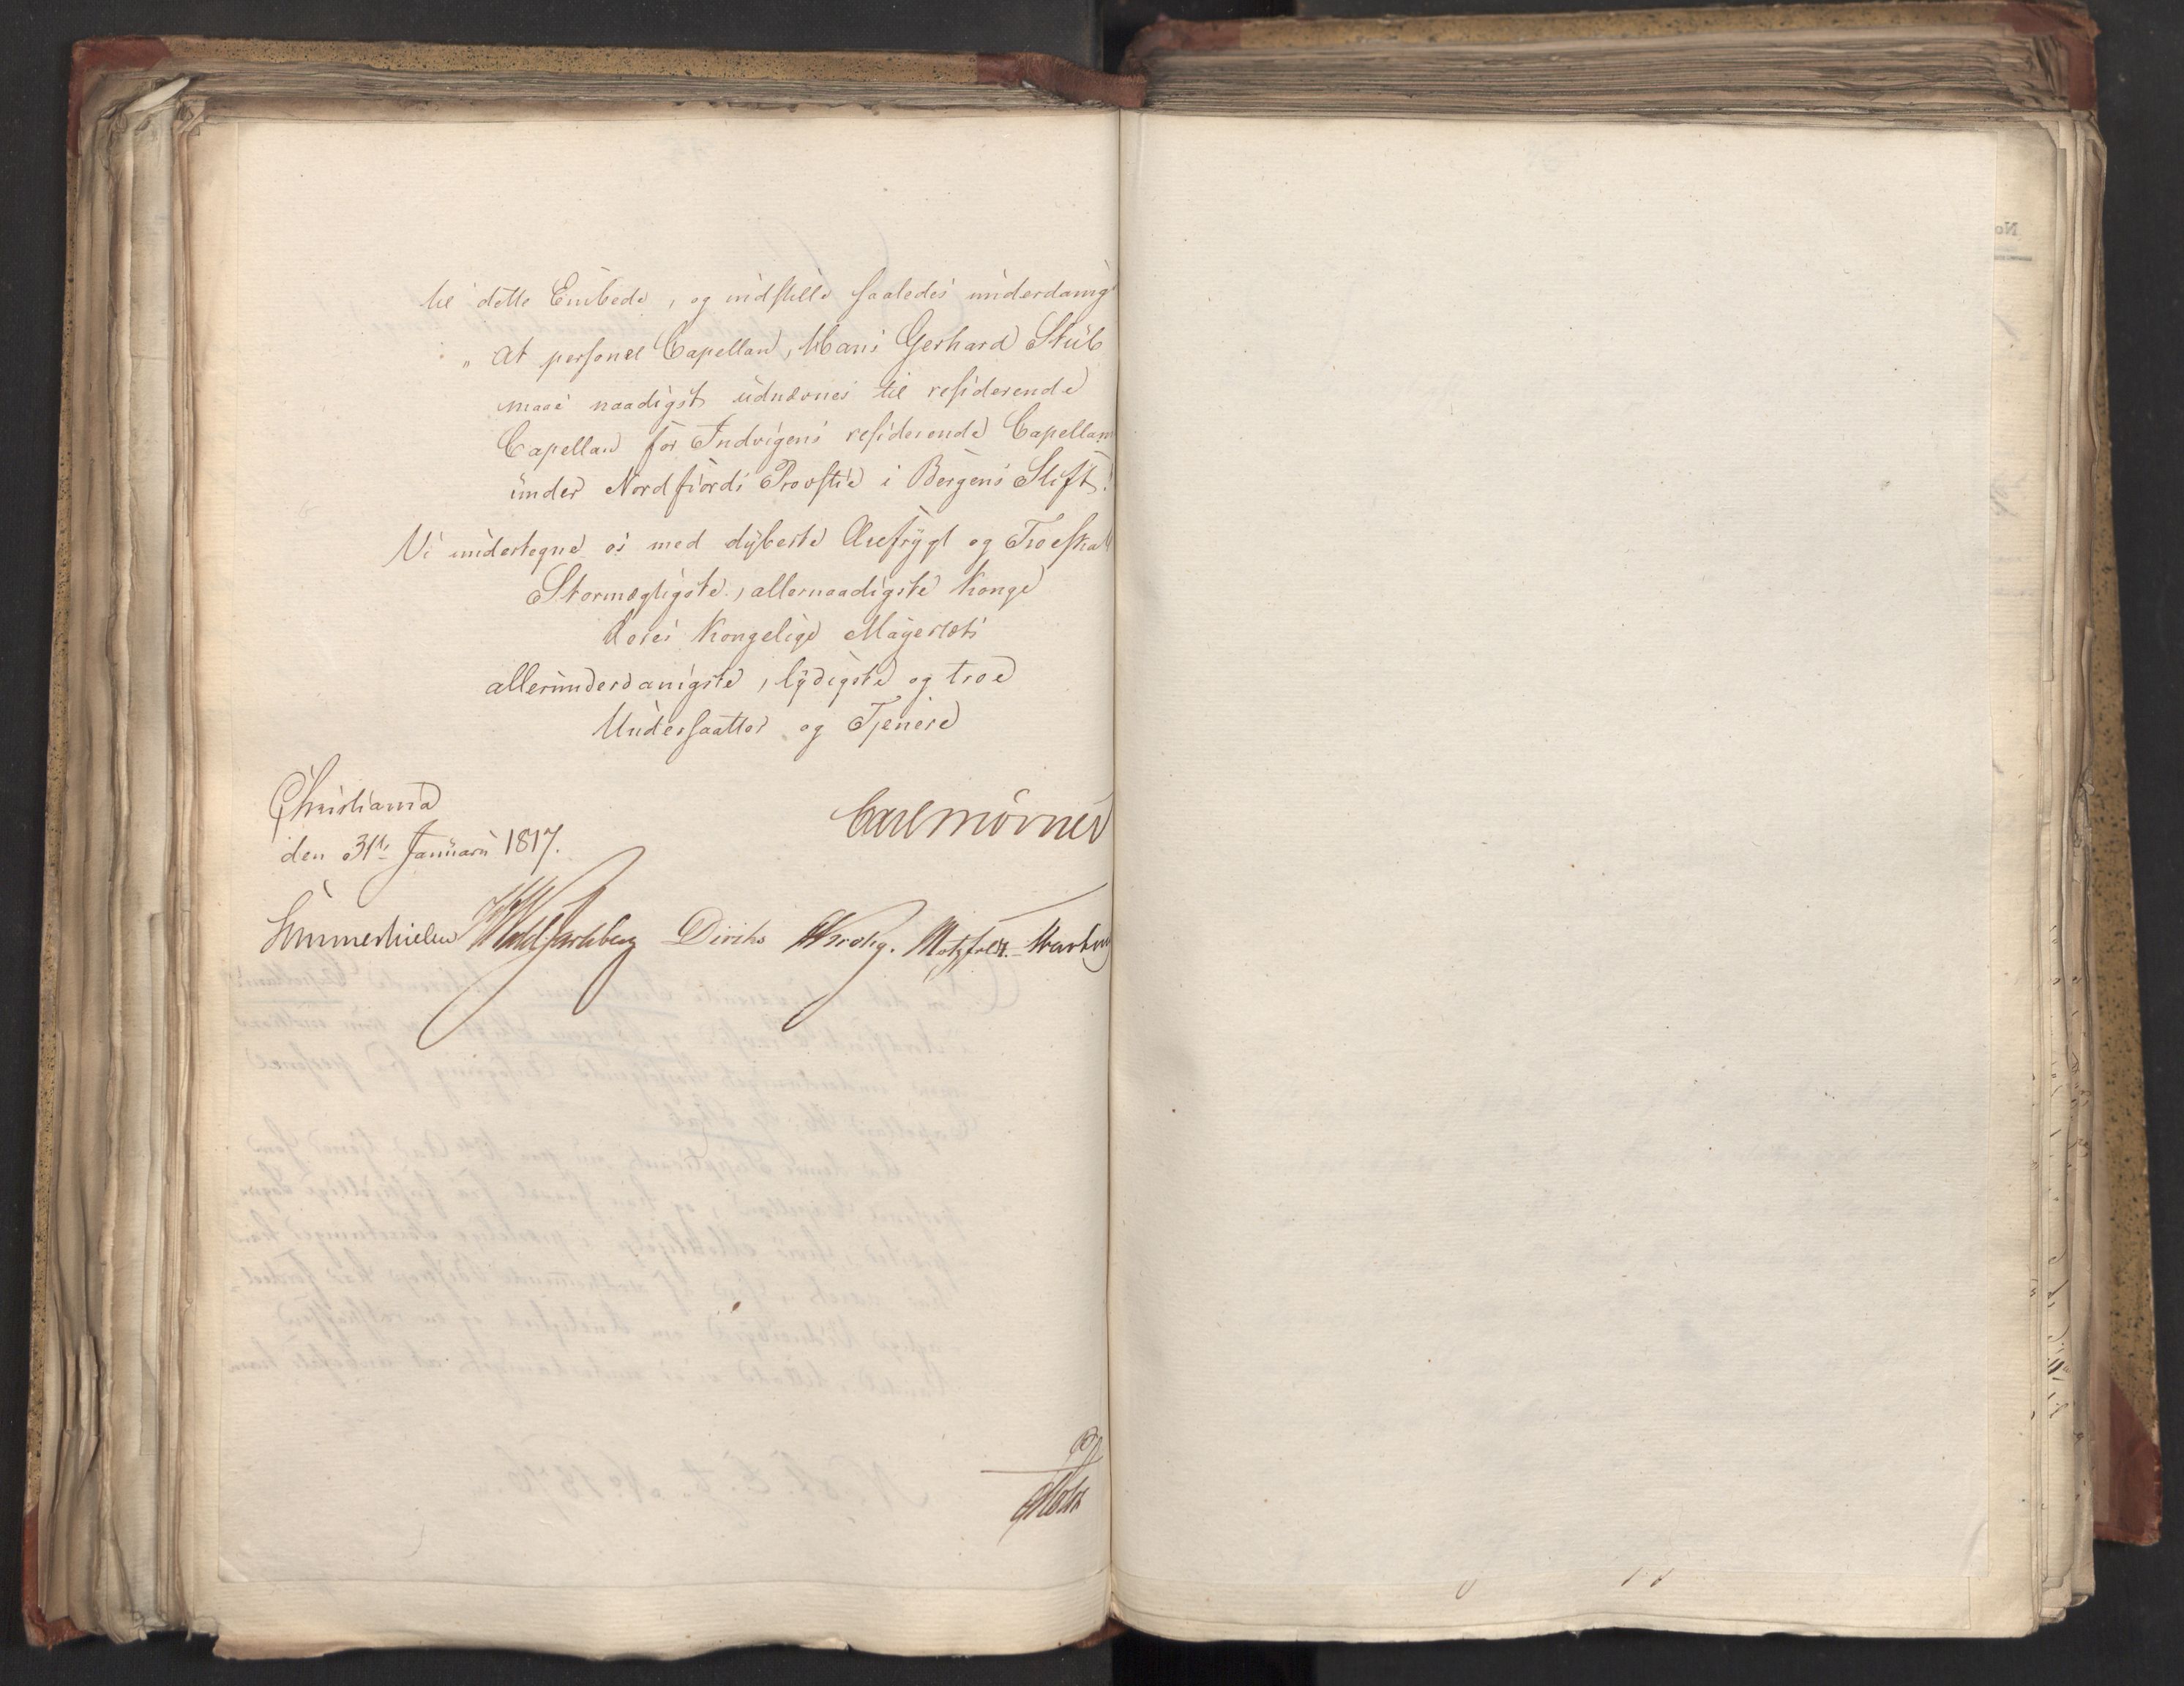 til dette Embede, og indstille saaledes underdanigst
„At personel Capellan, Mans Gerhard Stüb
maae naadigst udnævnes til residerende
Capellan for Indvigens residerende Capellani
under Nordfiords Provstie i Bergens Stift.“
Vi undertegne os med dybeste Ærefrygt og Troeskab
Stormægtigste, allernaadigste Konge
Deres Kongelige Mayestæts
allerunderdanigste, lydigste og troe
Undersaatter og Tjenere
Christiania
den 31te Januari 1817.
Carl Mörner
Sommerhielm Wedel Jarlsberg Diriks Krohg. Motzfeldt.
Holst